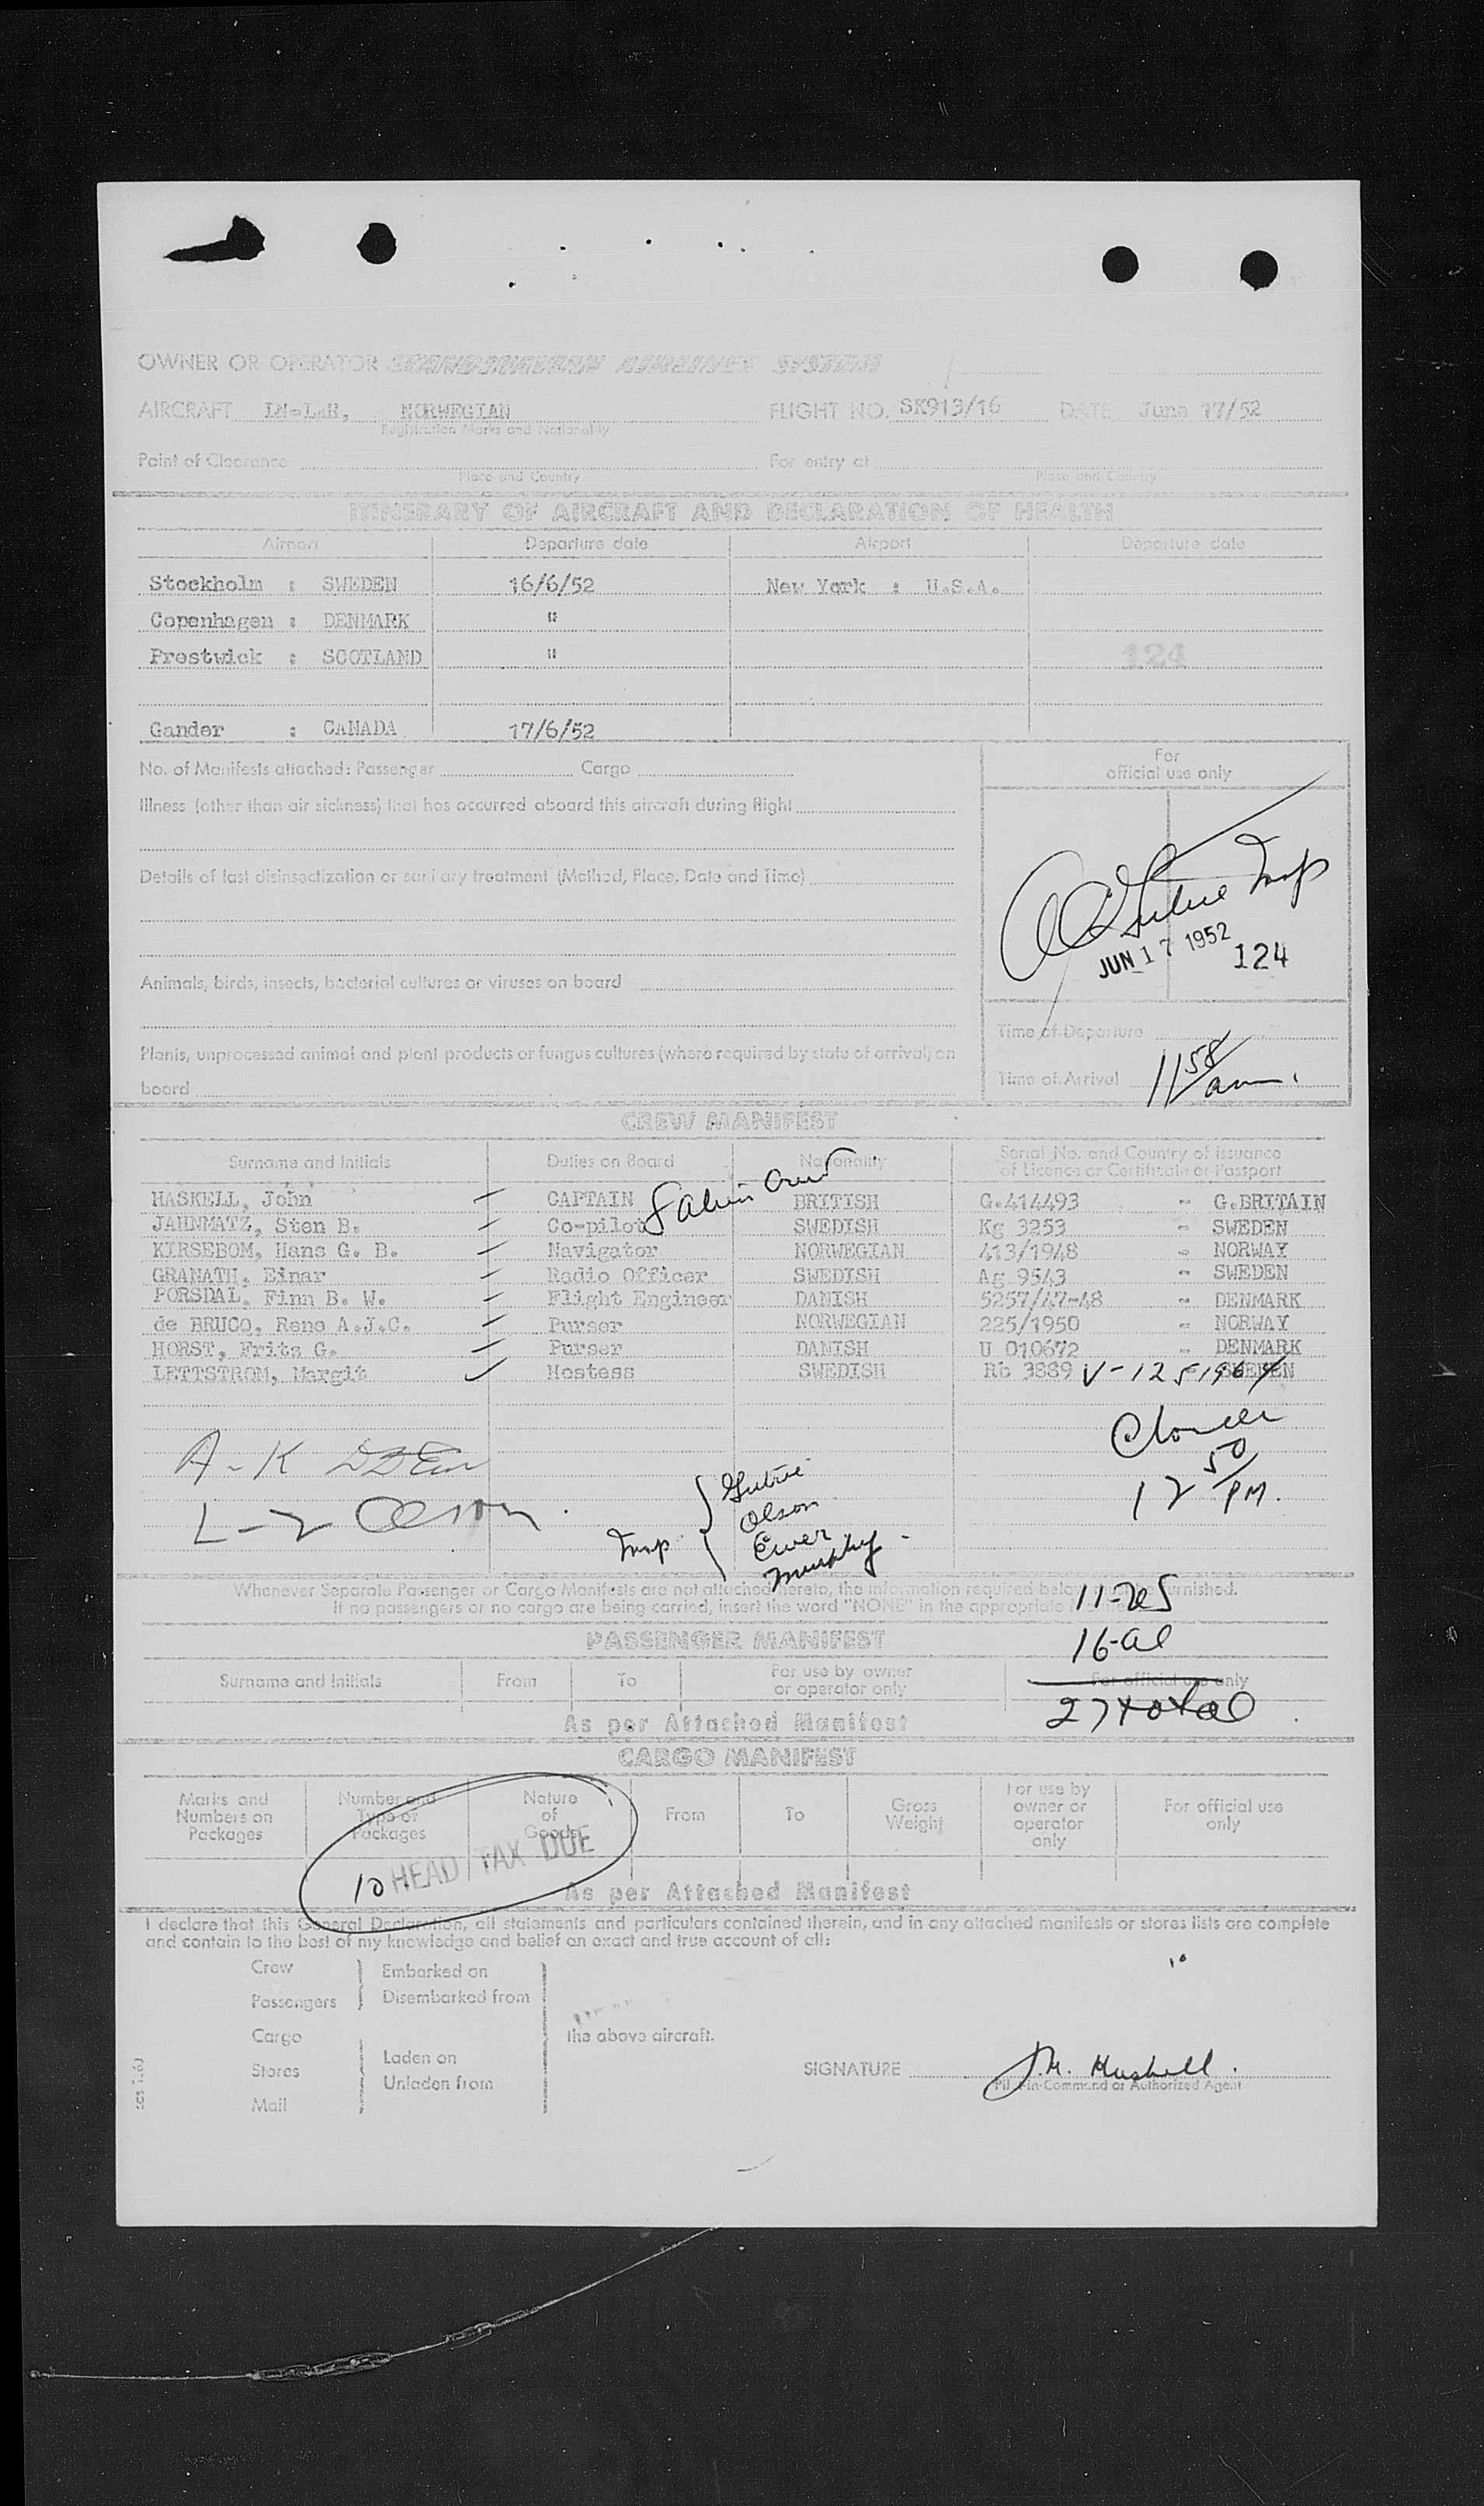 OWNER OR OPERATOR SCANDINAVIAN AIRLINES SYSTEM
AIRCRAFT LN-LAH, NORWEGIAN FLIGHT NO. SK913/16 DATE June 17/52
Registration Marks and Nationality
Point of Clearance For entry at
Place and Country Place and Country
ITINERARY OF AIRCRAFT AND DECLARATION OF HEALTH
Airport Departure date Airport Departure date
Stockholm : SWEDEN 16/6/52 New York : U.S.A.
Copenhagen : DENMARK "
Prestwick : SCOTLAND " 124
Gander : CANADA 17/6/52
No. of Manifests attached: Passenger Cargo
For
official use only
Illness (other than air sickness) that has occurred aboard this aircraft during flight
Details of last disinsectization or sanitary treatment (Method, Place, Date and Time)
Insp
JUN 17 1952
124
Animals, birds, insects, bacterial cultures or viruses on board
Time of Departure
Plants, unprocessed animal and plant products or fungus cultures (where required by state of arrival) on
board
Time of Arrival 11 58/am.
CREW MANIFEST
Surname and Initials Duties on Board Nationality Serial No. and Country of issuance
of Licence or Certificate or Passport
HASKELL, John CAPTAIN BRITISH G.414493 - G.BRITAIN
JAHNMATZ, Sten B. Co-pilot SWEDISH Kg 3253 - SWEDEN
KIRSEBOM, Hans G. B. Navigator NORWEGIAN 413/1948 - NORWAY
GRANATH, Einar Radio Officer SWEDISH Ag 9543 - SWEDEN
PORSDAL, Finn B. W. Flight Engineer DANISH 5257/47-48 - DENMARK
de BRUCQ, Rene A.J.C. Purser NORWEGIAN 225/1950 - NORWAY
HORST, Fritz G. Purser DANISH U 010672 - DENMARK
LETTSTROM, Margit Hostess SWEDISH Rb 3889 SWEDEN
8 alien crew
A-K
L-Z Olson
Insp
Gutrie
Olson
Ewer
Murphy
12 50/PM.
Whenever Separate Passenger or Cargo Manifests are not attached hereto, the information required below furnished.
If no passengers or no cargo are being carried, insert the word "NONE" in the appropriate
11-us
16-al
27 total
PASSENGER MANIFEST
Surname and Initials From To For use by owner
or operator only For official use only
As per Attached Manifest
CARGO MANIFEST
Marks and
Numbers on
Packages
Number and
Type of
Packages
Nature
of
Goods
From
To
Gross
Weight
For use by
owner or
operator
only
For official use
only
10 HEAD TAX DUE
As per Attached Manifest
I declare that this General Declaration, all statements and particulars contained therein, and in any attached manifests or stores lists are complete
and contain to the best of my knowledge and belief an exact and true account of all:
Crew
Passengers
Embarked on
Disembarked from
Cargo
Stores
Mail
Laden on
Unladen from
the above aircraft.
SIGNATURE J.H. Haskell.
Pilot-in-Command or Authorized Agent